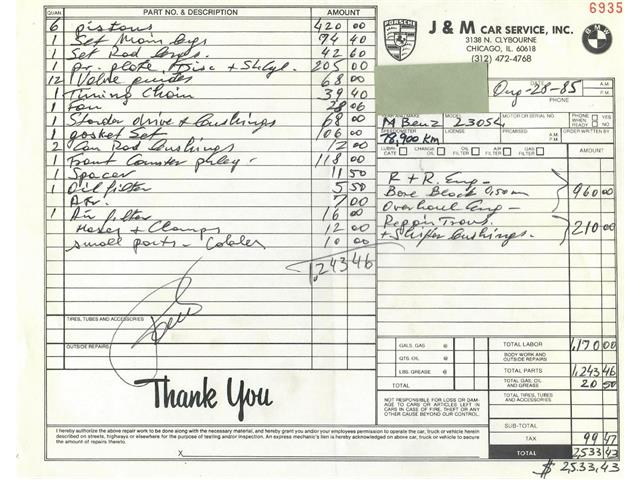 6935
QUAN. PART NO. & DESCRIPTION AMOUNT
6 pistons 420 00
1 Set Main brgs 74 40
1 Set Rod 42 60
1 pr. plate, Disc + 205 00
12 Valve guides 68 00
1 Timing Chain 39 40
1 Fan 28 06
1 Starder drive & bushings 68 00
1 gasket Set 106 00
2 Con Rod bushings 12 00
1 front Counter 118 00
1 Spacer 11 50
1 Oil filter 5 50
7 00
1 Air filter 16 00
Hoses + Clamps 12 00
small parts - 10 00
1,243 46
TIRES, TUBES AND ACCESSORIES
OUTSIDE REPAIRS
Thank You
I hereby authorize the above repair work to be done along with the necessary material, and hereby grant you and/or your employees permission to operate the car, truck or vehicle herein
described on streets, highways or elsewhere for the purpose of testing and/or inspection. An express mechanic's lien is hereby acknowledged on above car, truck or vehicle to secure
the amount of repairs thereto.
X
PORSCHE
J & M CAR SERVICE, INC.
3138 N. CLYBOURNE
CHICAGO, IL. 60618
(312) 472-4768
BMW
DATE
Aug-28-85
A.M.
P.M.
PHONE
MAKE MODEL MOTOR OR SERIAL NO. PHONE WHEN READY YES NO
M Benz 230SL
SPEEDOMETER LICENSE NO. PROMISED A.M. P.M. ORDER WRITTEN BY
78,900 KM
LUBRICATE CHANGE OIL OIL FILTER AIR FILTER GAS FILTER AMOUNT
R + R. Eng -
Bore Block 0,50 mm 960 00
Overhaul Eng -
Repair Trans. 210 00
+ Shifter bushings.
GALS. GAS @ TOTAL LABOR 1,170 00
QTS. OIL @ BODY WORK AND OUTSIDE REPAIRS
LBS. GREASE @ TOTAL PARTS 1,243 46
TOTAL TOTAL GAS, OIL AND GREASE 20 50
NOT RESPONSIBLE FOR LOSS OR DAM-
AGE TO CARS OR ARTICLES LEFT IN
CARS IN CASE OF FIRE, THEFT OR ANY
OTHER CAUSE BEYOND OUR CONTROL.
TOTAL TIRES, TUBES AND ACCESSORIES
SUB-TOTAL
TAX 99 47
TOTAL 2533 43
$ 2533,43